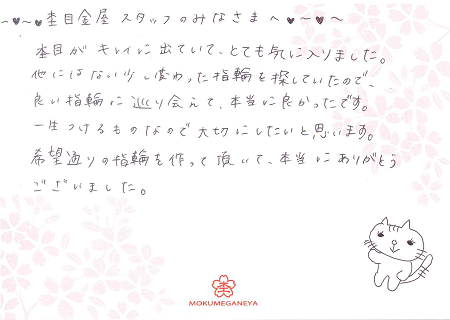 ～♥～♥杢目金屋 スタッフのみなさまへ♥～♥～
杢目がキレイに出ていて、とても気に入りました。
他にはない少し変わった指輪を探していたので、
良い指輪に巡り会えて、本当に良かったです。
一生つけるものなので大切にしたいと思います。
希望通りの指輪を作って頂いて、本当にありがとう
ございました。
MOKUMEGANEYA